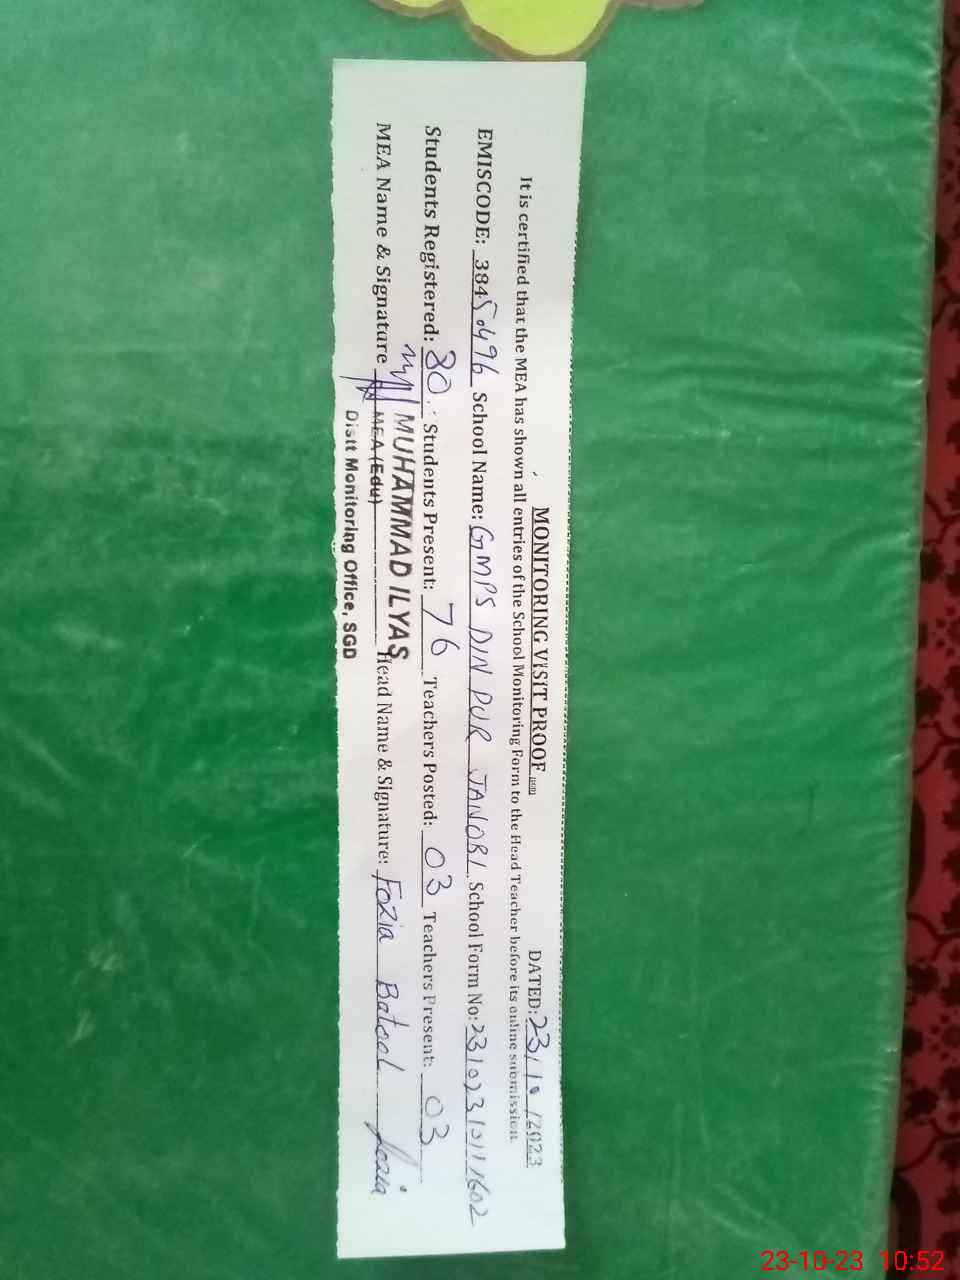 MONITORING VISIT PROOF DATED: 23/10/2023
It is certified that the MEA has shown all entries of the School Monitoring Form to the Head Teacher before its online submission.
EMISCODE: 38450496 School Name: GMPS DIN PUR JANOBI School Form No:
Students Registered: 80 Students Present: 76 Teachers Posted: 03 Teachers Present: 03
MEA Name & Signature MUHAMMAD ILYAS Head Name & Signature: Fozia Batool Fozia
MEA (Edu)
Distt Monitoring Office, SGD
23-10-23 10:52